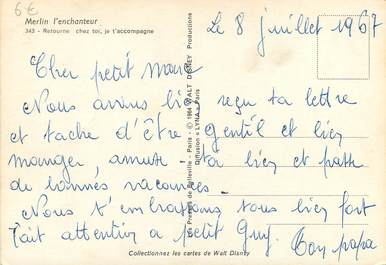 6€
Merlin l'enchanteur
343 - Retourne chez toi, je t'accompagne
Le 8 juillet 1967
Cher petit Marc
Nous avons bien reçu ta lettre
et tache d'être gentil et bien
manger, amuse-toi bien et passe
de bonnes vacances -
Nous t'embrassons tous bien fort
Fait attention a petit Guy. Ton papa
Les Presses de Belleville - Paris - © 1964 WALT DISNEY Productions
Diffusion « LYNA » Paris
Collectionnez les cartes de Walt Disney